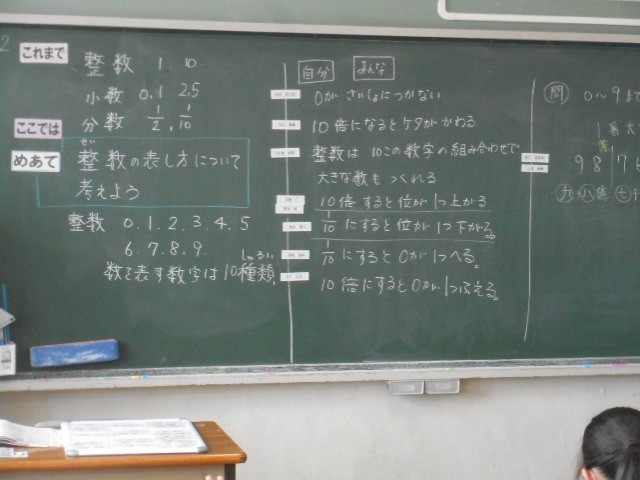 2
これまで
整数 1. 10
小数 0.1 2.5
分数 1/2, 1/10
ここでは
めあて
せい
整数の表し方について
考えよう
整数 0.1.2.3.4.5
6.7.8.9.
しゅるい
数を表す数字は10種類.
自分 みんな
0がさいしょにつかない
10倍になるとケタがかわる
整数は10この数字の組み合わせで
大きな数もつくれる
10倍すると位が1つ上がる
1/10にすると位が1つ下がる。
1/10にすると0が1つへる。
10倍にすると0が1つふえる。
問 0〜9まで
1番大
億
98|7
九八億七千